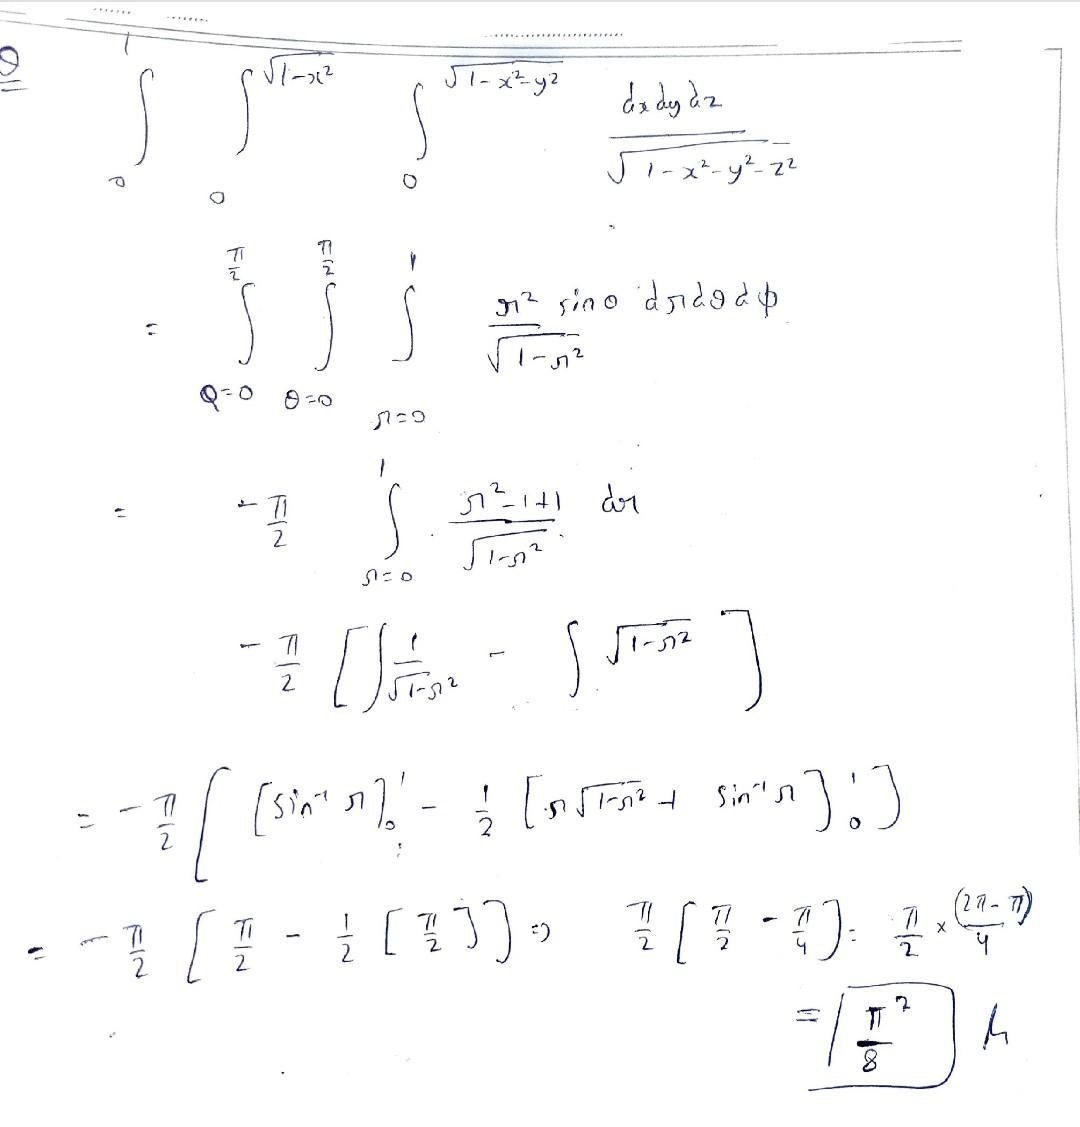 Q ∫₀¹ ∫₀^√(1-x²) ∫₀^√(1-x²-y²) dx dy dz / √(1-x²-y²-z²)
= ∫_{φ=0}^{π/2} ∫_{θ=0}^{π/2} ∫_{r=0}^{1} r² sinθ dr dθ dφ / √(1-r²)
= -π/2 ∫_{r=0}^{1} (r²-1+1) / √(1-r²) dr
-π/2 [∫ 1/√(1-r²) - ∫ √(1-r²)]
= -π/2 [[sin⁻¹ r]₀¹ - 1/2 [r√(1-r²) + sin⁻¹ r]₀¹]
= -π/2 [π/2 - 1/2 [π/2]] ⇒ π/2 [π/2 - π/4] = π/2 × (2π-π)/4
= π²/8